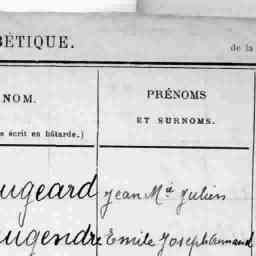 BÉTIQUE. de la
NOM. PRÉNOMS
ET SURNOMS.
e écrit en bâtarde.)
ugeard Jean Mie Julien
augendre Emile Joseph Armand